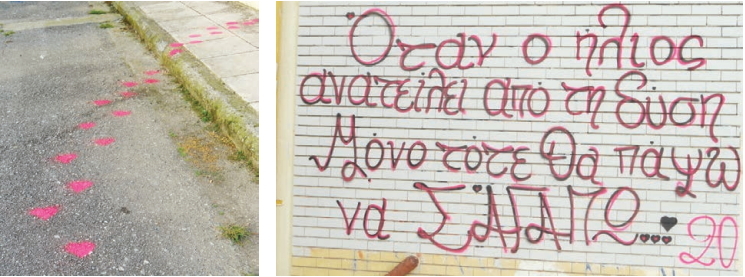 Όταν ο ήλιος
ανατείλει από τη δύση
Μόνο τότε θα πάψω
να ΣΑΓΑΠΩ...
20